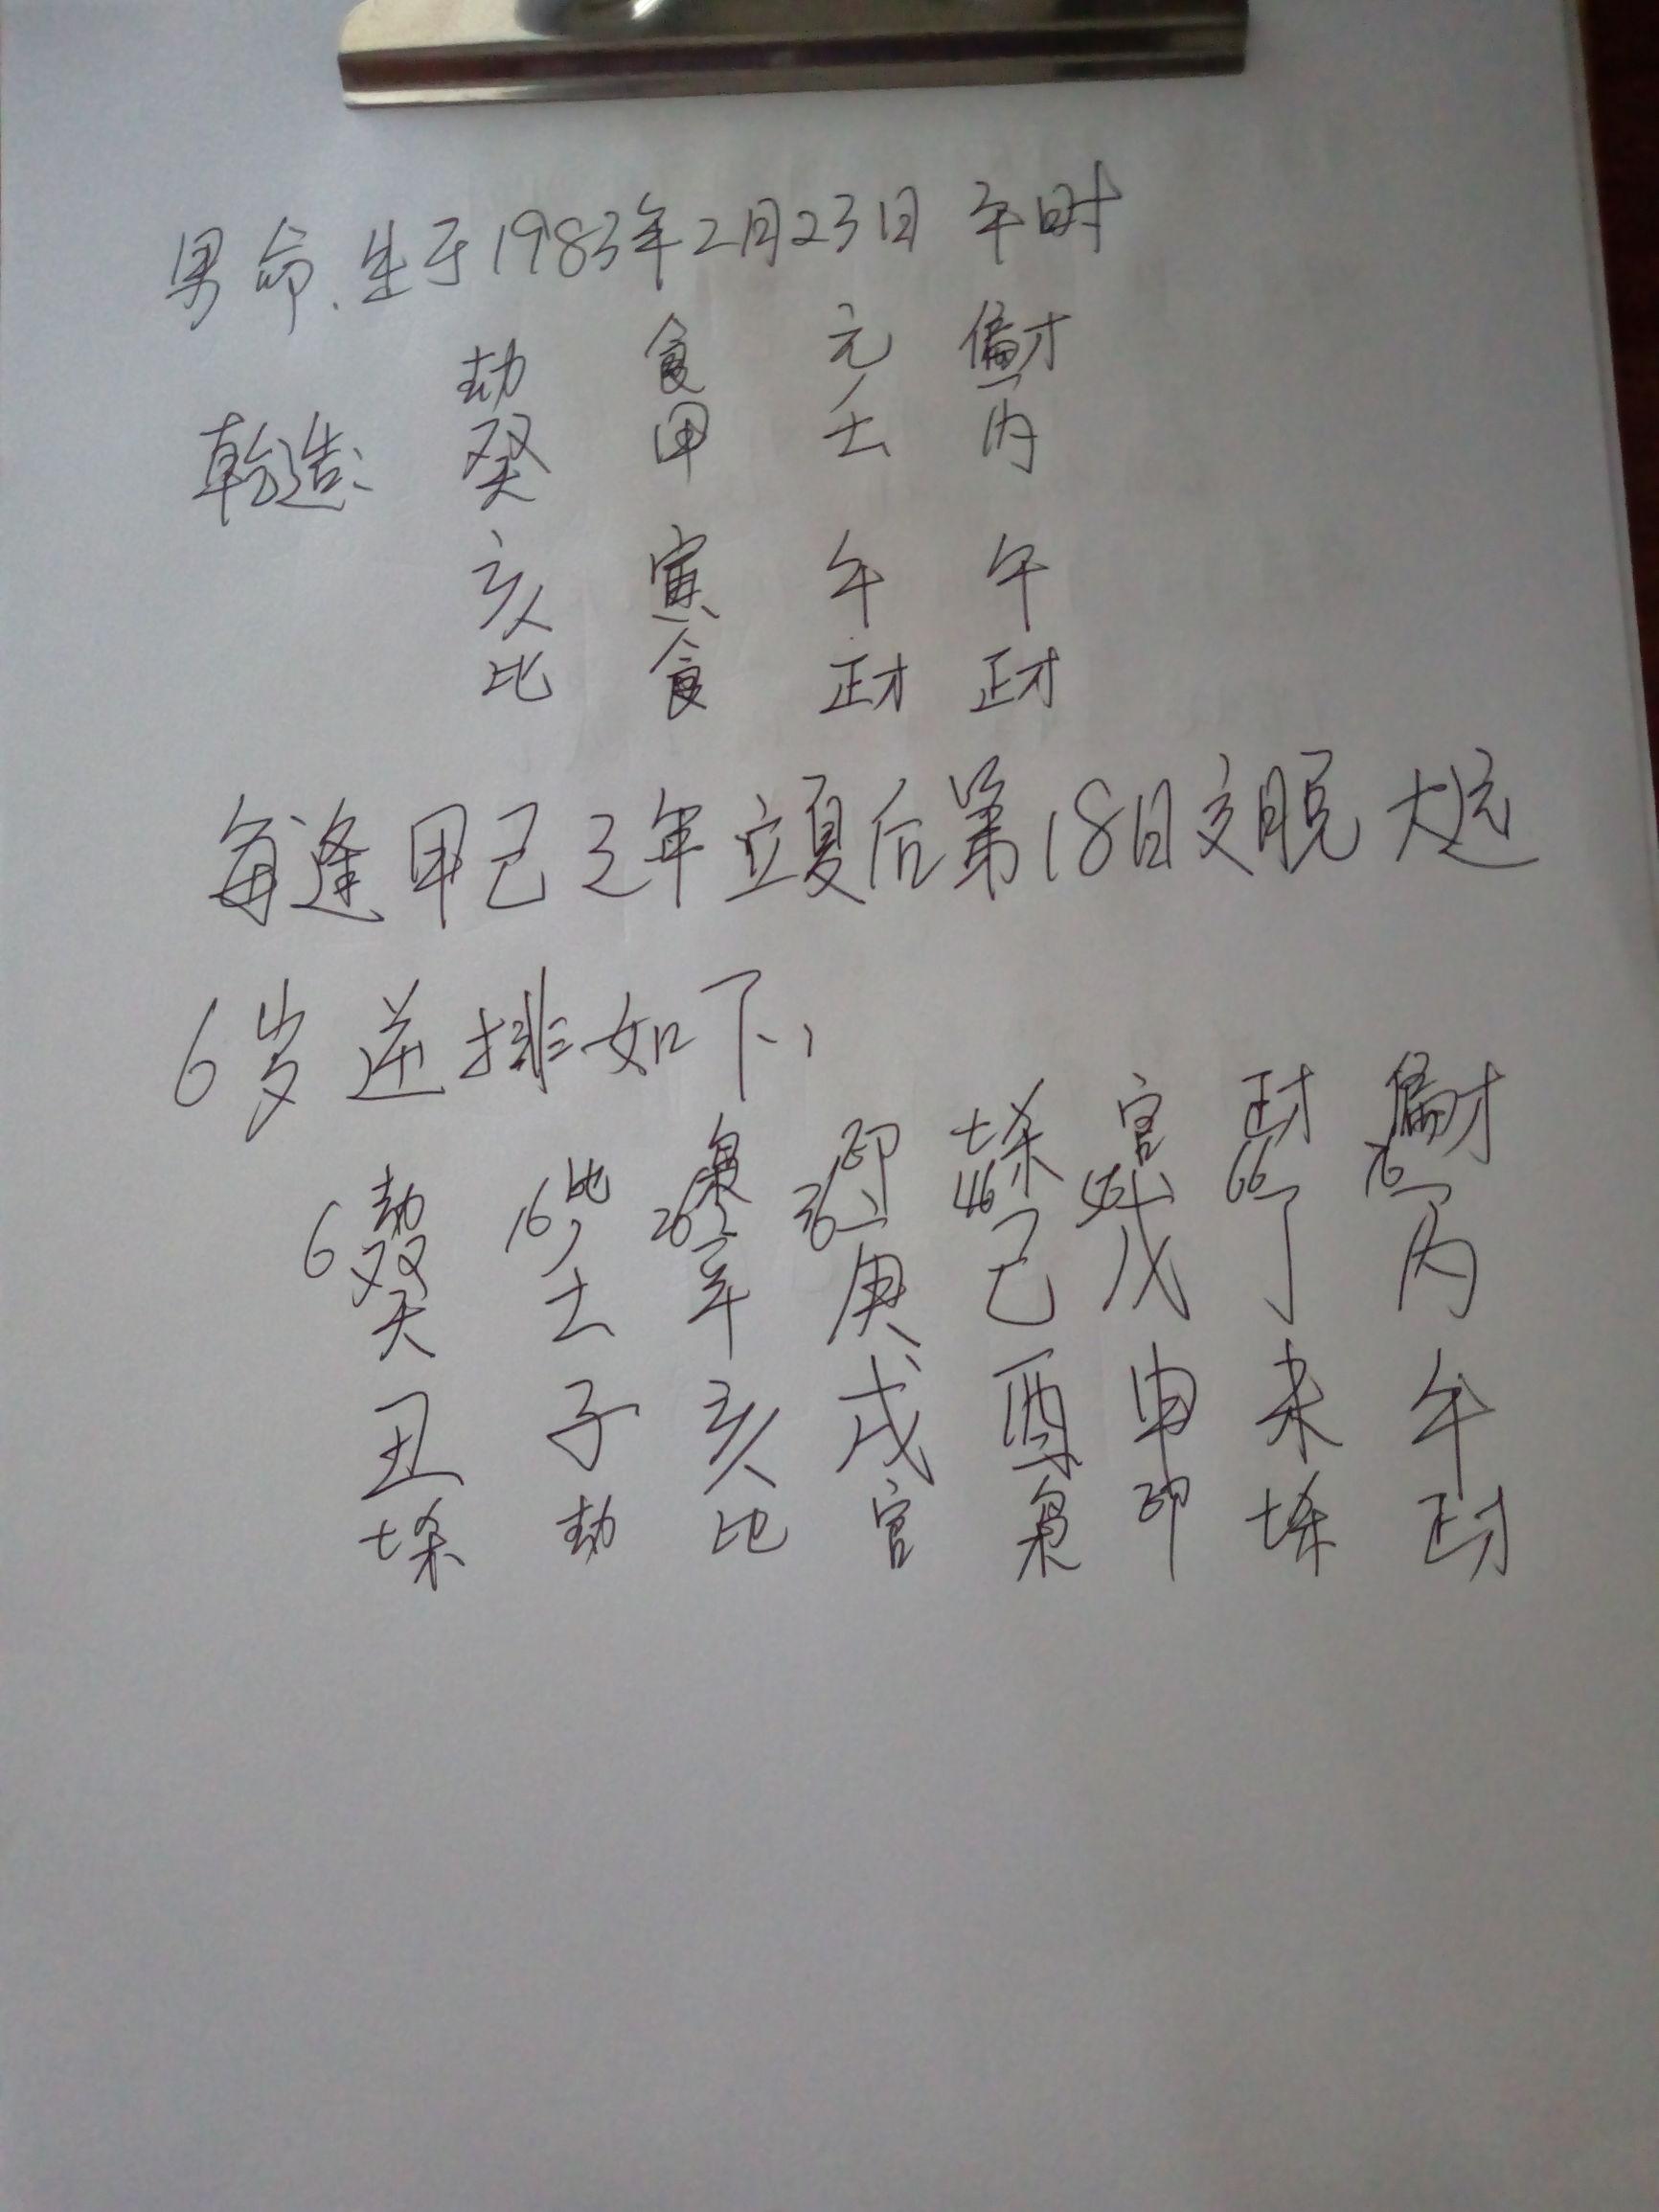 男命.生于1983年2月23日 午时
劫 食 元 偏才
乾造: 癸 甲 壬 丙
亥 寅 午 午
比 食 正才 正才
每逢甲己之年立夏后第18日交脱大运
6岁逆排如下,
劫 比 枭 印 七杀 官 正才 偏才
6 16 26 36 46 56 66 76
癸 壬 辛 庚 己 戊 丁 丙
丑 子 亥 戌 酉 申 未 午
七杀 劫 比 官 枭 印 七杀 正才